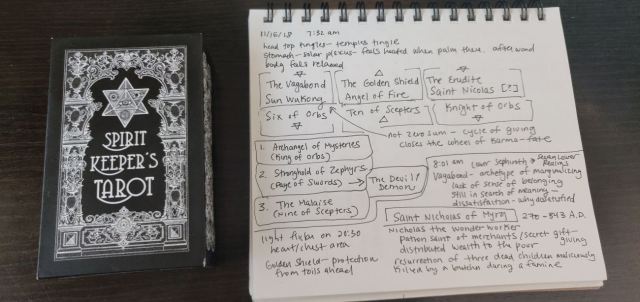 SPIRIT
KEEPER'S
TAROT
11/16/18 7:32 am
head top tingles - temples tingle
stomach - solar plexus - feels heated when palm there, afterward
body feels relaxed
The Vagabond
Sun Wukong
The Golden Shield
Angel of Fire
The Erudite
Saint Nicolas [?]
Six of Orbs
Ten of Scepters
Knight of Orbs
not zero sum - cycle of giving
closes the wheel of Karma - fate
1. Archangel of Mysteries
(King of Orbs)
2. Stronghold of Zephyrs
(Page of Swords)
3. The Malaise
(Nine of Scepters)
The Devil /
Demon
8:01 am Lower Sephiroth → Seven Lower
Realms
Vagabond - archetype of marginalizing
lack of sense of belonging
still in search of meaning -
dissatisfaction - why dissatisfied
Saint Nicholas of Myra 270 - 343 A.D.
Nicholas the wonder worker
patron saint of merchants / secret gift-giving
distributed wealth to the poor
resurrection of three dead children maliciously
killed by a butcher during a famine
light flicker on 20:30
heart/chest area
Golden Shield - protection
from toils ahead